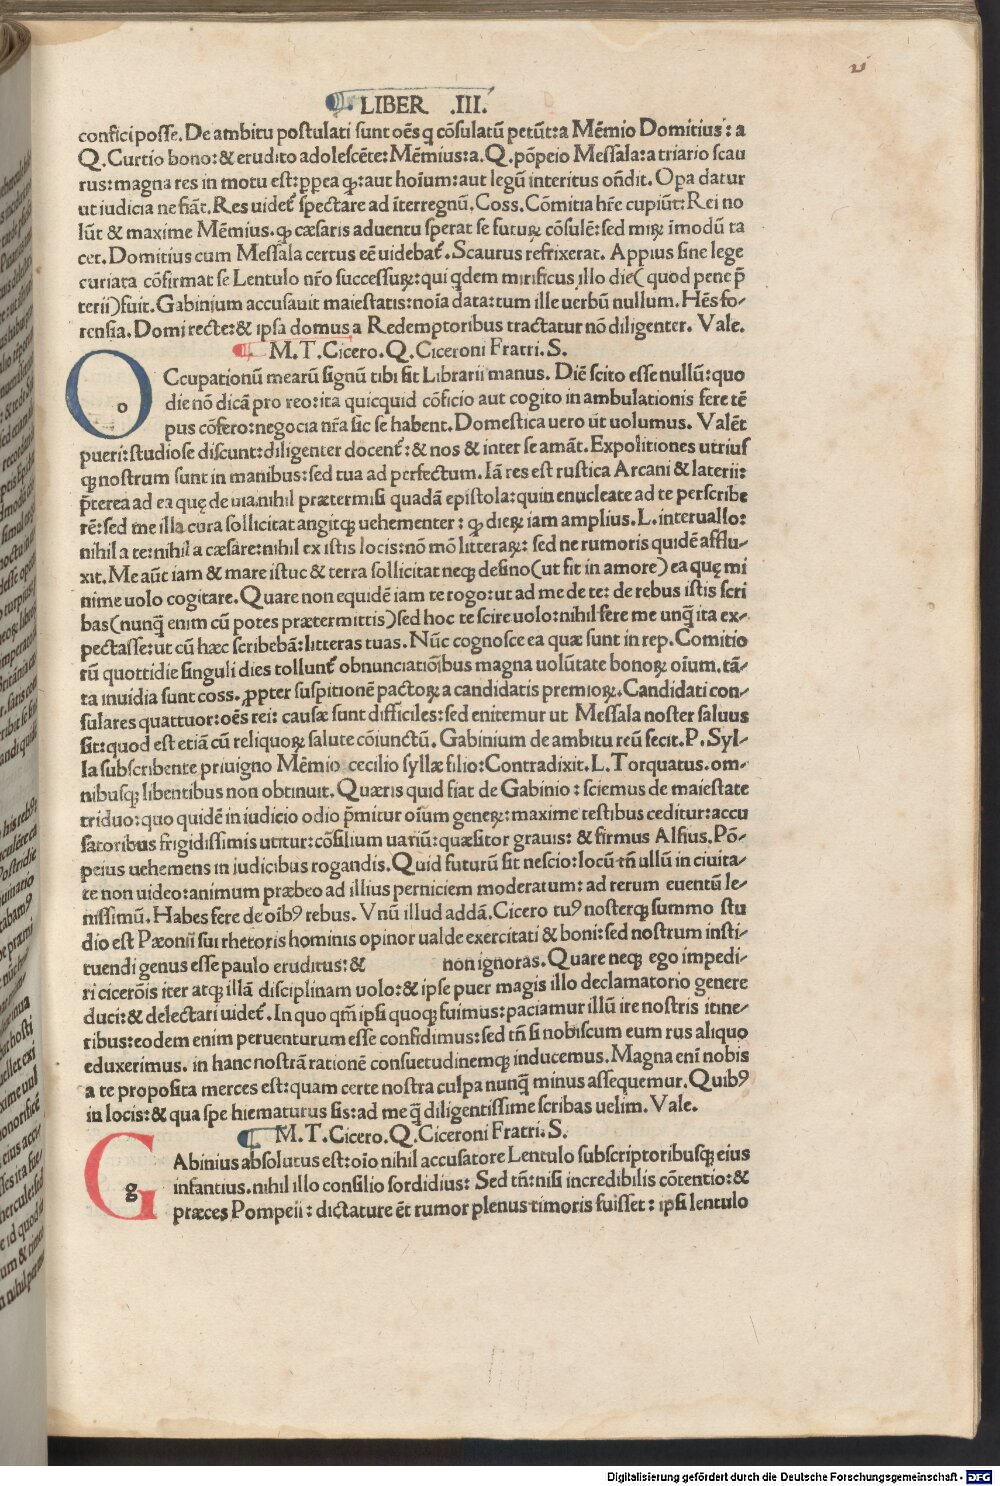 LIBER .III.
confici posse. De ambitu postulati sunt oēs q cōsulatū petūt: a Mēmio Domitius: a
Q. Curtio bono: & erudito adolescēte: Mēmius: a. Q. pōpeio Messala: a triario scau
rus: magna res in motu est: ꝓpea ꝙ: aut hoīum: aut legū interitus oñdit. Opa datur
ut iudicia ne fiāt. Res uidet᷑ spectare ad īterregnū. Coss. Cōmitia hr̄e cupiūt: Rei no
lūt & maxime Mēmius. ꝙ cæsaris aduentu sperat se futuꝝ cōsulē: sed miꝝ īmodū ta
cet. Domitius cum Messala certus eē uidebat᷑. Scaurus refrixerat. Appius sine lege
curiata cōfirmat se Lentulo nr̄o successuꝝ: qui qdem mirificus illo die( quod pene p̄
terii) fuit. Gabinium accusauit maiestatis: noīa data: tum ille uerbū nullum. Hēs fo-
rensia. Domi recte: & ipsa domus a Redemptoribus tractatur nō diligenter. Vale.
M. T. Cicero. Q. Ciceroni Fratri. S.
O o Ccupationū mearū signū tibi sit Librarii manus. Diē scito esse nullū: quo
die nō dicā pro reo: ita quicquid cōficio aut cogito in ambulationis fere tē
pus cōfero: negocia nr̄a sic se habent. Domestica uero ut uolumus. Valēt
pueri: studiose discunt: diligenter docent᷑: & nos & inter se amāt. Expolitiones utrius
qꝫ nostrum sunt in manibus: sed tua ad perfectum. Iā res est rustica Arcani & laterii:
p̄terea ad ea quę de uia. nihil prætermisi quadā epistola: quin enucleate ad te perscribe
rē: sed me illa cura sollicitat angitqꝫ uehementer: ꝙ dieꝝ iam amplius. L. interuallo:
nihil a te: nihil a cæsare: nihil ex istis locis: nō mō litteraꝝ: sed ne rumoris quidē afflu-
xit. Me aūt iam & mare istuc & terra sollicitat neqꝫ desino( ut fit in amore) ea quę mi
nime uolo cogitare. Quare non equidē iam te rogo: ut ad me de te: de rebus istis scri
bas( nunq̄ enim cū potes prætermittis) sed hoc te scire uolo: nihil fere me unq̄ ita ex-
pectasse: ut cū hæc scribebā: litteras tuas. Nūc cognosce ea quæ sunt in rep. Comitio
rū quottidie singuli dies tollunt᷑ obnunciatiōibus magna uolūtate bonoꝝ oīum. tā-
ta inuidia sunt coss. ꝓpter suspitionē pactoꝝ a candidatis premioꝝ. Candidati con-
sulares quattuor: oēs rei: causæ sunt difficiles: sed enitemur ut Messala noster saluus
sit: quod est etiā cū reliquoꝝ salute cōiunctū. Gabinium de ambitu reū fecit. P. Syl-
la subscribente priuigno Mēmio cecilio syllæ filio: Contradixit. L. Torquatus. om-
nibusqꝫ libentibus non obtinuit. Quæris quid fiat de Gabinio: sciemus de maiestate
triduo: quo quidē in iudicio odio p̄mitur oīum geneꝝ: maxime testibus ceditur: accu
satoribus frigidissimis utitur: cōsilium uariū: quæsitor grauis: & firmus Alfius. Pō-
peius uehemens in iudicibus rogandis. Quid futurū sit nescio: locū tn̄ ullū in ciuita-
te non uideo: animum præbeo ad illius perniciem moderatum: ad rerum euentū le-
nissimū. Habes fere de oībꝰ rebus. Vnū illud addā. Cicero tuꝰ nosterqꝫ summo stu
dio est Pæonii sui rhetoris hominis opinor ualde exercitati & boni: sed nostrum insti-
tuendi genus esse paulo eruditus: & non ignoras. Quare neqꝫ ego impedi-
ri cicerōis iter atqꝫ illā disciplinam uolo: & ipse puer magis illo declamatorio genere
duci: & delectari uidet᷑. In quo qm̄ ipsi quoqꝫ fuimus: paciamur illū ire nostris itine-
ribus: eodem enim peruenturum esse confidimus: sed tn̄ si nobiscum eum rus aliquo
eduxerimus. in hanc nostrā rationē consuetudinemqꝫ inducemus. Magna enī nobis
a te proposita merces est: quam certe nostra culpa nunq̄ minus assequemur. Quibꝰ
in locis: & qua spe hiematurus sis: ad me q̄ diligentissime scribas uelim. Vale.
M. T. Cicero. Q. Ciceroni Fratri. S.
G g Abinius absolutus est: oīo nihil accusatore Lentulo subscriptoribusqꝫ eius
infantius. nihil illo consilio sordidius: Sed tn̄: nisi incredibilis cōtentio: &
præces Pompeii: dictature ēt rumor plenus timoris fuisset: ipsi lentulo
Digitalisierung gefördert durch die Deutsche Forschungsgemeinschaft - DFG